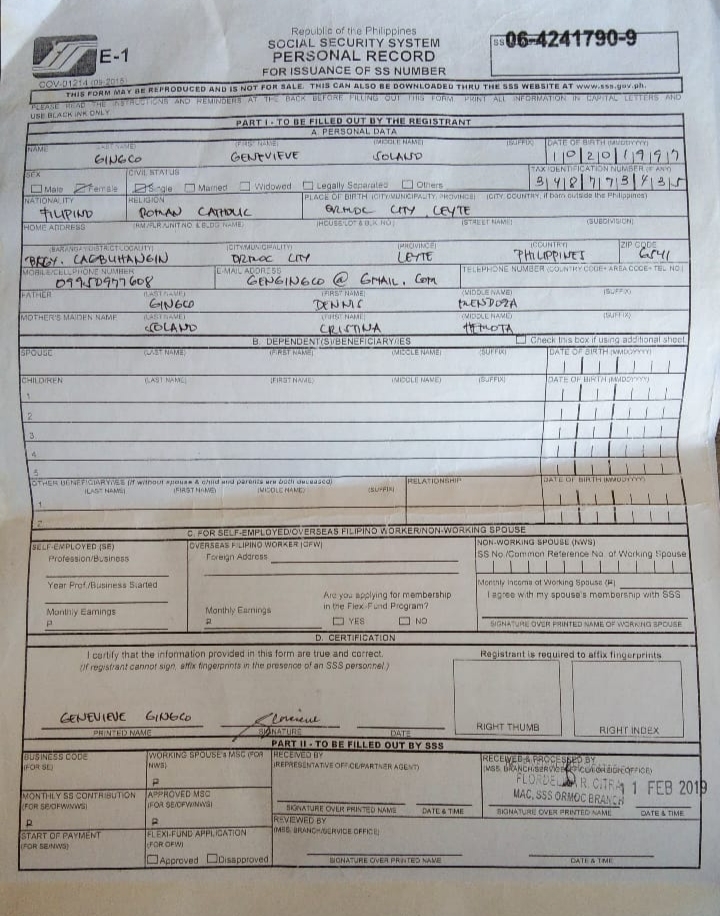 Republic of the Philippines
SOCIAL SECURITY SYSTEM
PERSONAL RECORD
FOR ISSUANCE OF SS NUMBER
E-1
COV-01214 (09-2015)
SS 06-4241790-9
THIS FORM MAY BE REPRODUCED AND IS NOT FOR SALE. THIS CAN ALSO BE DOWNLOADED THRU THE SSS WEBSITE AT www.sss.gov.ph.
PLEASE READ THE INSTRUCTIONS AND REMINDERS AT THE BACK BEFORE FILLING OUT THIS FORM. PRINT ALL INFORMATION IN CAPITAL LETTERS AND
USE BLACK INK ONLY
PART I - TO BE FILLED OUT BY THE REGISTRANT
A. PERSONAL DATA
NAME (LAST NAME) (FIRST NAME) (MIDDLE NAME) (SUFFIX) DATE OF BIRTH (MMDDYYYY)
GINGCO GENEVIEVE SOLANO 10201997
SEX CIVIL STATUS TAX IDENTIFICATION NUMBER (IF ANY)
Male Female Single Married Widowed Legally Separated Others 348773435
NATIONALITY RELIGION PLACE OF BIRTH (CITY/MUNICIPALITY, PROVINCE) (CITY, COUNTRY, if born outside the Philippines)
FILIPINO ROMAN CATHOLIC ORMOC CITY, LEYTE
HOME ADDRESS (RM./FLR./UNIT NO. & BLDG. NAME) (HOUSE/LOT & BLK. NO.) (STREET NAME) (SUBDIVISION)
(BARANGAY/DISTRICT/LOCALITY) (CITY/MUNICIPALITY) (PROVINCE) (COUNTRY) ZIP CODE
BRGY. CAGBUHANGIN ORMOC CITY LEYTE PHILIPPINES 6541
MOBILE/CELLPHONE NUMBER E-MAIL ADDRESS TELEPHONE NUMBER (COUNTRY CODE + AREA CODE + TEL. NO.)
09950977608 GENGINGCO @ GMAIL. Com
FATHER (LAST NAME) (FIRST NAME) (MIDDLE NAME) (SUFFIX)
GINGCO DENNIS MENDOZA
MOTHER'S MAIDEN NAME (LAST NAME) (FIRST NAME) (MIDDLE NAME) (SUFFIX)
SOLANO CRISTINA
B. DEPENDENT(S)/BENEFICIARY/IES Check this box if using additional sheet.
SPOUSE (LAST NAME) (FIRST NAME) (MIDDLE NAME) (SUFFIX) DATE OF BIRTH (MMDDYYYY)
CHILDREN (LAST NAME) (FIRST NAME) (MIDDLE NAME) (SUFFIX) DATE OF BIRTH (MMDDYYYY)
1
2
3
4
5
OTHER BENEFICIARY/IES (If without spouse & child and parents are both deceased) RELATIONSHIP DATE OF BIRTH (MMDDYYYY)
(LAST NAME) (FIRST NAME) (MIDDLE NAME) (SUFFIX)
1
2
C. FOR SELF-EMPLOYED/OVERSEAS FILIPINO WORKER/NON-WORKING SPOUSE
SELF-EMPLOYED (SE) OVERSEAS FILIPINO WORKER (OFW) NON-WORKING SPOUSE (NWS)
Profession/Business Foreign Address SS No./Common Reference No. of Working Spouse
Year Prof./Business Started Monthly Income of Working Spouse (₱)
Are you applying for membership I agree with my spouse's membership with SSS
Monthly Earnings Monthly Earnings in the Flexi-Fund Program?
₱ ₱ YES NO SIGNATURE OVER PRINTED NAME OF WORKING SPOUSE
D. CERTIFICATION
I certify that the information provided in this form are true and correct. Registrant is required to affix fingerprints
(If registrant cannot sign, affix fingerprints in the presence of an SSS personnel.)
GENEVIEVE GINGCO Genevieve
PRINTED NAME SIGNATURE DATE RIGHT THUMB RIGHT INDEX
PART II - TO BE FILLED OUT BY SSS
BUSINESS CODE WORKING SPOUSE'S MSC (FOR RECEIVED BY RECEIVED & PROCESSED BY
(FOR SE) NWS) (REPRESENTATIVE OFFICE/PARTNER AGENT) (MSS, BRANCH/SERVICE OFFICE/FOREIGN OFFICE)
₱ FLORDEL R. 11 FEB 2019
MAC, SSS ORMOC BRANCH
MONTHLY SS CONTRIBUTION APPROVED MSC
(FOR SE/OFW/NWS) (FOR SE/OFW/NWS) SIGNATURE OVER PRINTED NAME DATE & TIME SIGNATURE OVER PRINTED NAME DATE & TIME
₱ ₱ REVIEWED BY
(MSS, BRANCH/SERVICE OFFICE)
START OF PAYMENT FLEXI-FUND APPLICATION
(FOR SE/NWS) (FOR OFW)
Approved Disapproved SIGNATURE OVER PRINTED NAME DATE & TIME